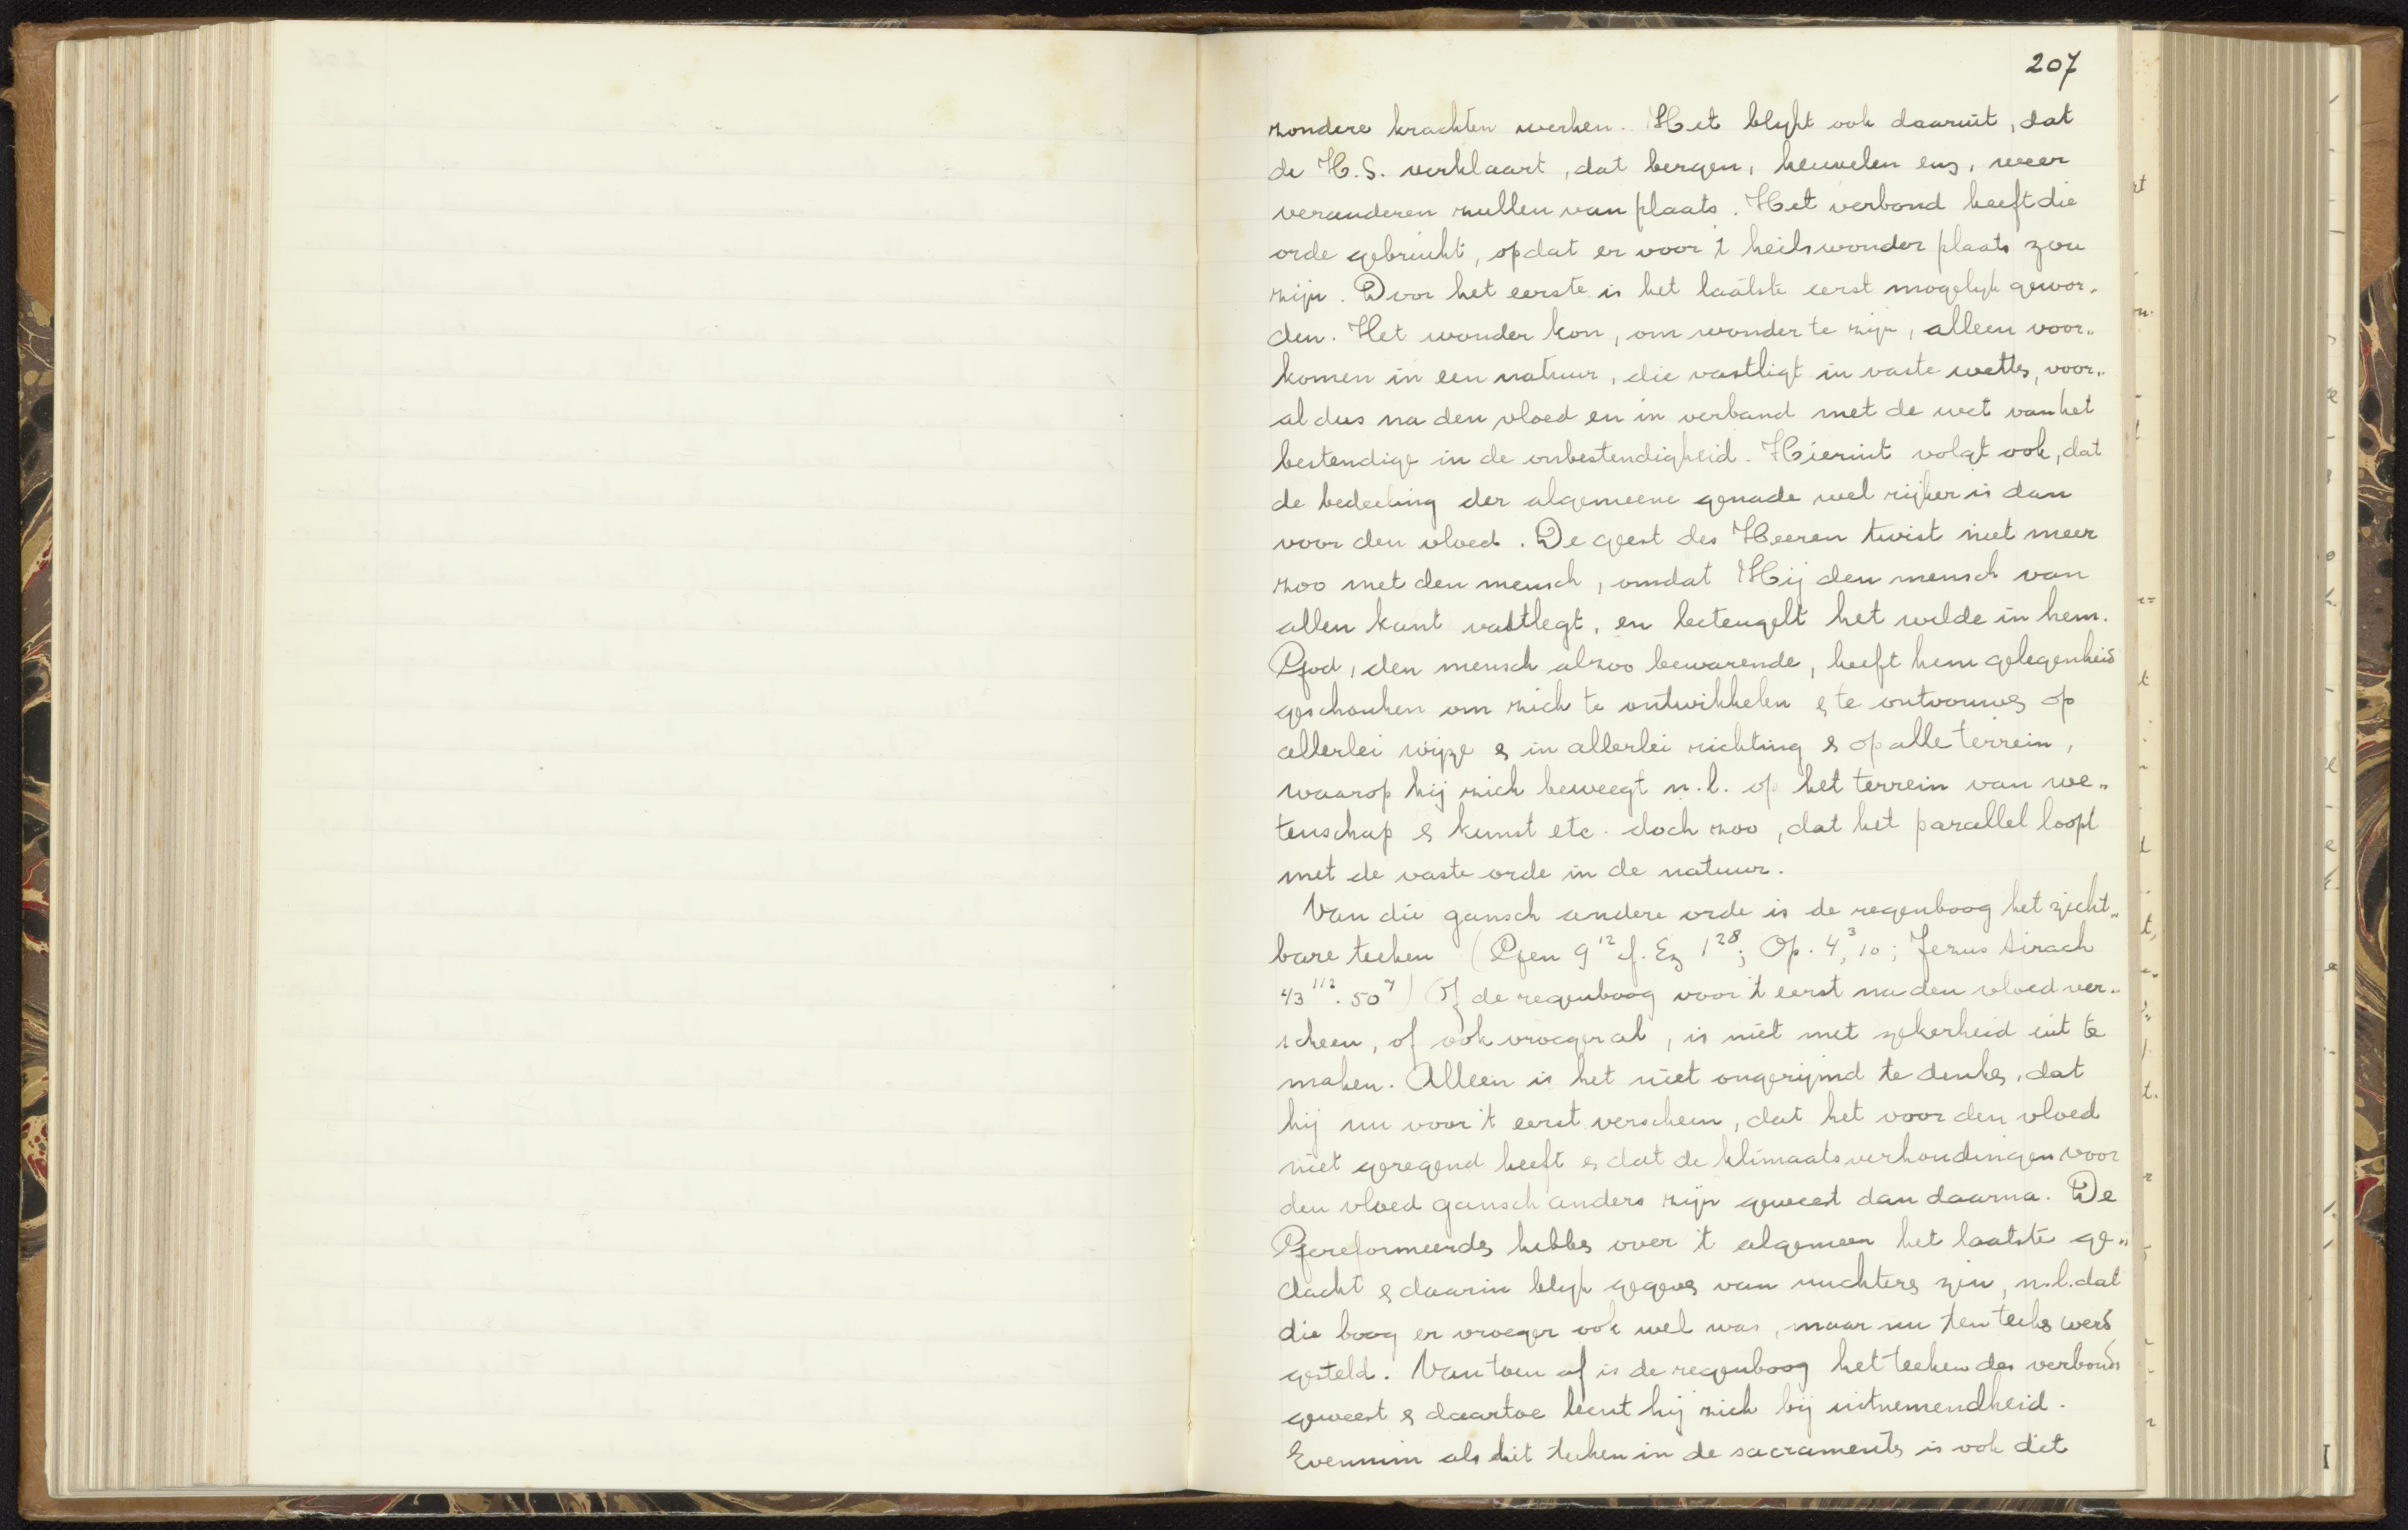 207
zondere krachten werken. Het blijkt ook daaruit, dat
de H.S. verklaart, dat bergen, heuvelen enz, weer
veranderen zullen van plaats. Het verbond heeft die
orde gebruikt, opdat er voor 't heilswonder plaats zou
zijn. Door het eerste is het laatste eerst mogelijk gewor-
den. Het wonder kon, om wonder te zijn, alleen voor„
komen in een natuur, die vastligt in vaste wetten, voor„
al dus na den vloed en in verband met de wet van het
bestendige in de onbestendigheid. Hieruit volgt ook, dat
de bedeeling der algemeene genade wel rijker is dan
voor den vloed. De geest des Heeren twist niet meer
zoo met den mensch, omdat Hij den mensch van
allen kant vastlegt, en beteugelt het wilde in hem.
God, den mensch alzoo bewarende, heeft hem gelegenheid
geschonken om zich te ontwikkelen & te ontvouwen op
allerlei wijze & in allerlei richting & op alle terrein,
waarop hij zich beweegt n.l. op het terrein van we„
tenschap & kunst etc. doch zoo, dat het parallel loopt
met de vaste orde in de natuur.
Van die gansch andere orde is de regenboog het zicht„
bare teeken (Gen 9¹² cf. Ez 1²⁸; Op. 4,³ 10; Jezus Sirach
43¹¹². 50⁷) Of de regenboog voor 't eerst na den vloed ver„
scheen, of ook vroeger al, is niet met zekerheid uit te
maken. Alleen is het niet ongerijmd te denken, dat
hij nu voor 't eerst verscheen, dat het voor den vloed
niet geregend heeft & dat de klimaatsverhoudingen voor
den vloed gansch anders zijn geweest dan daarna. De
Gereformeerden hebben over 't algemeen het laatste ge„
dacht & daarin blijk gegeven van nuchteren zin, n.l. dat
die boog er vroeger ook wel was, maar nu ten teeken werd
gesteld. Van toen af is de regenboog het teeken des verbonds
geweest & daartoe leent hij zich bij uitnemendheid.
Evenmin als het teeken in de sacramenten is ook dit